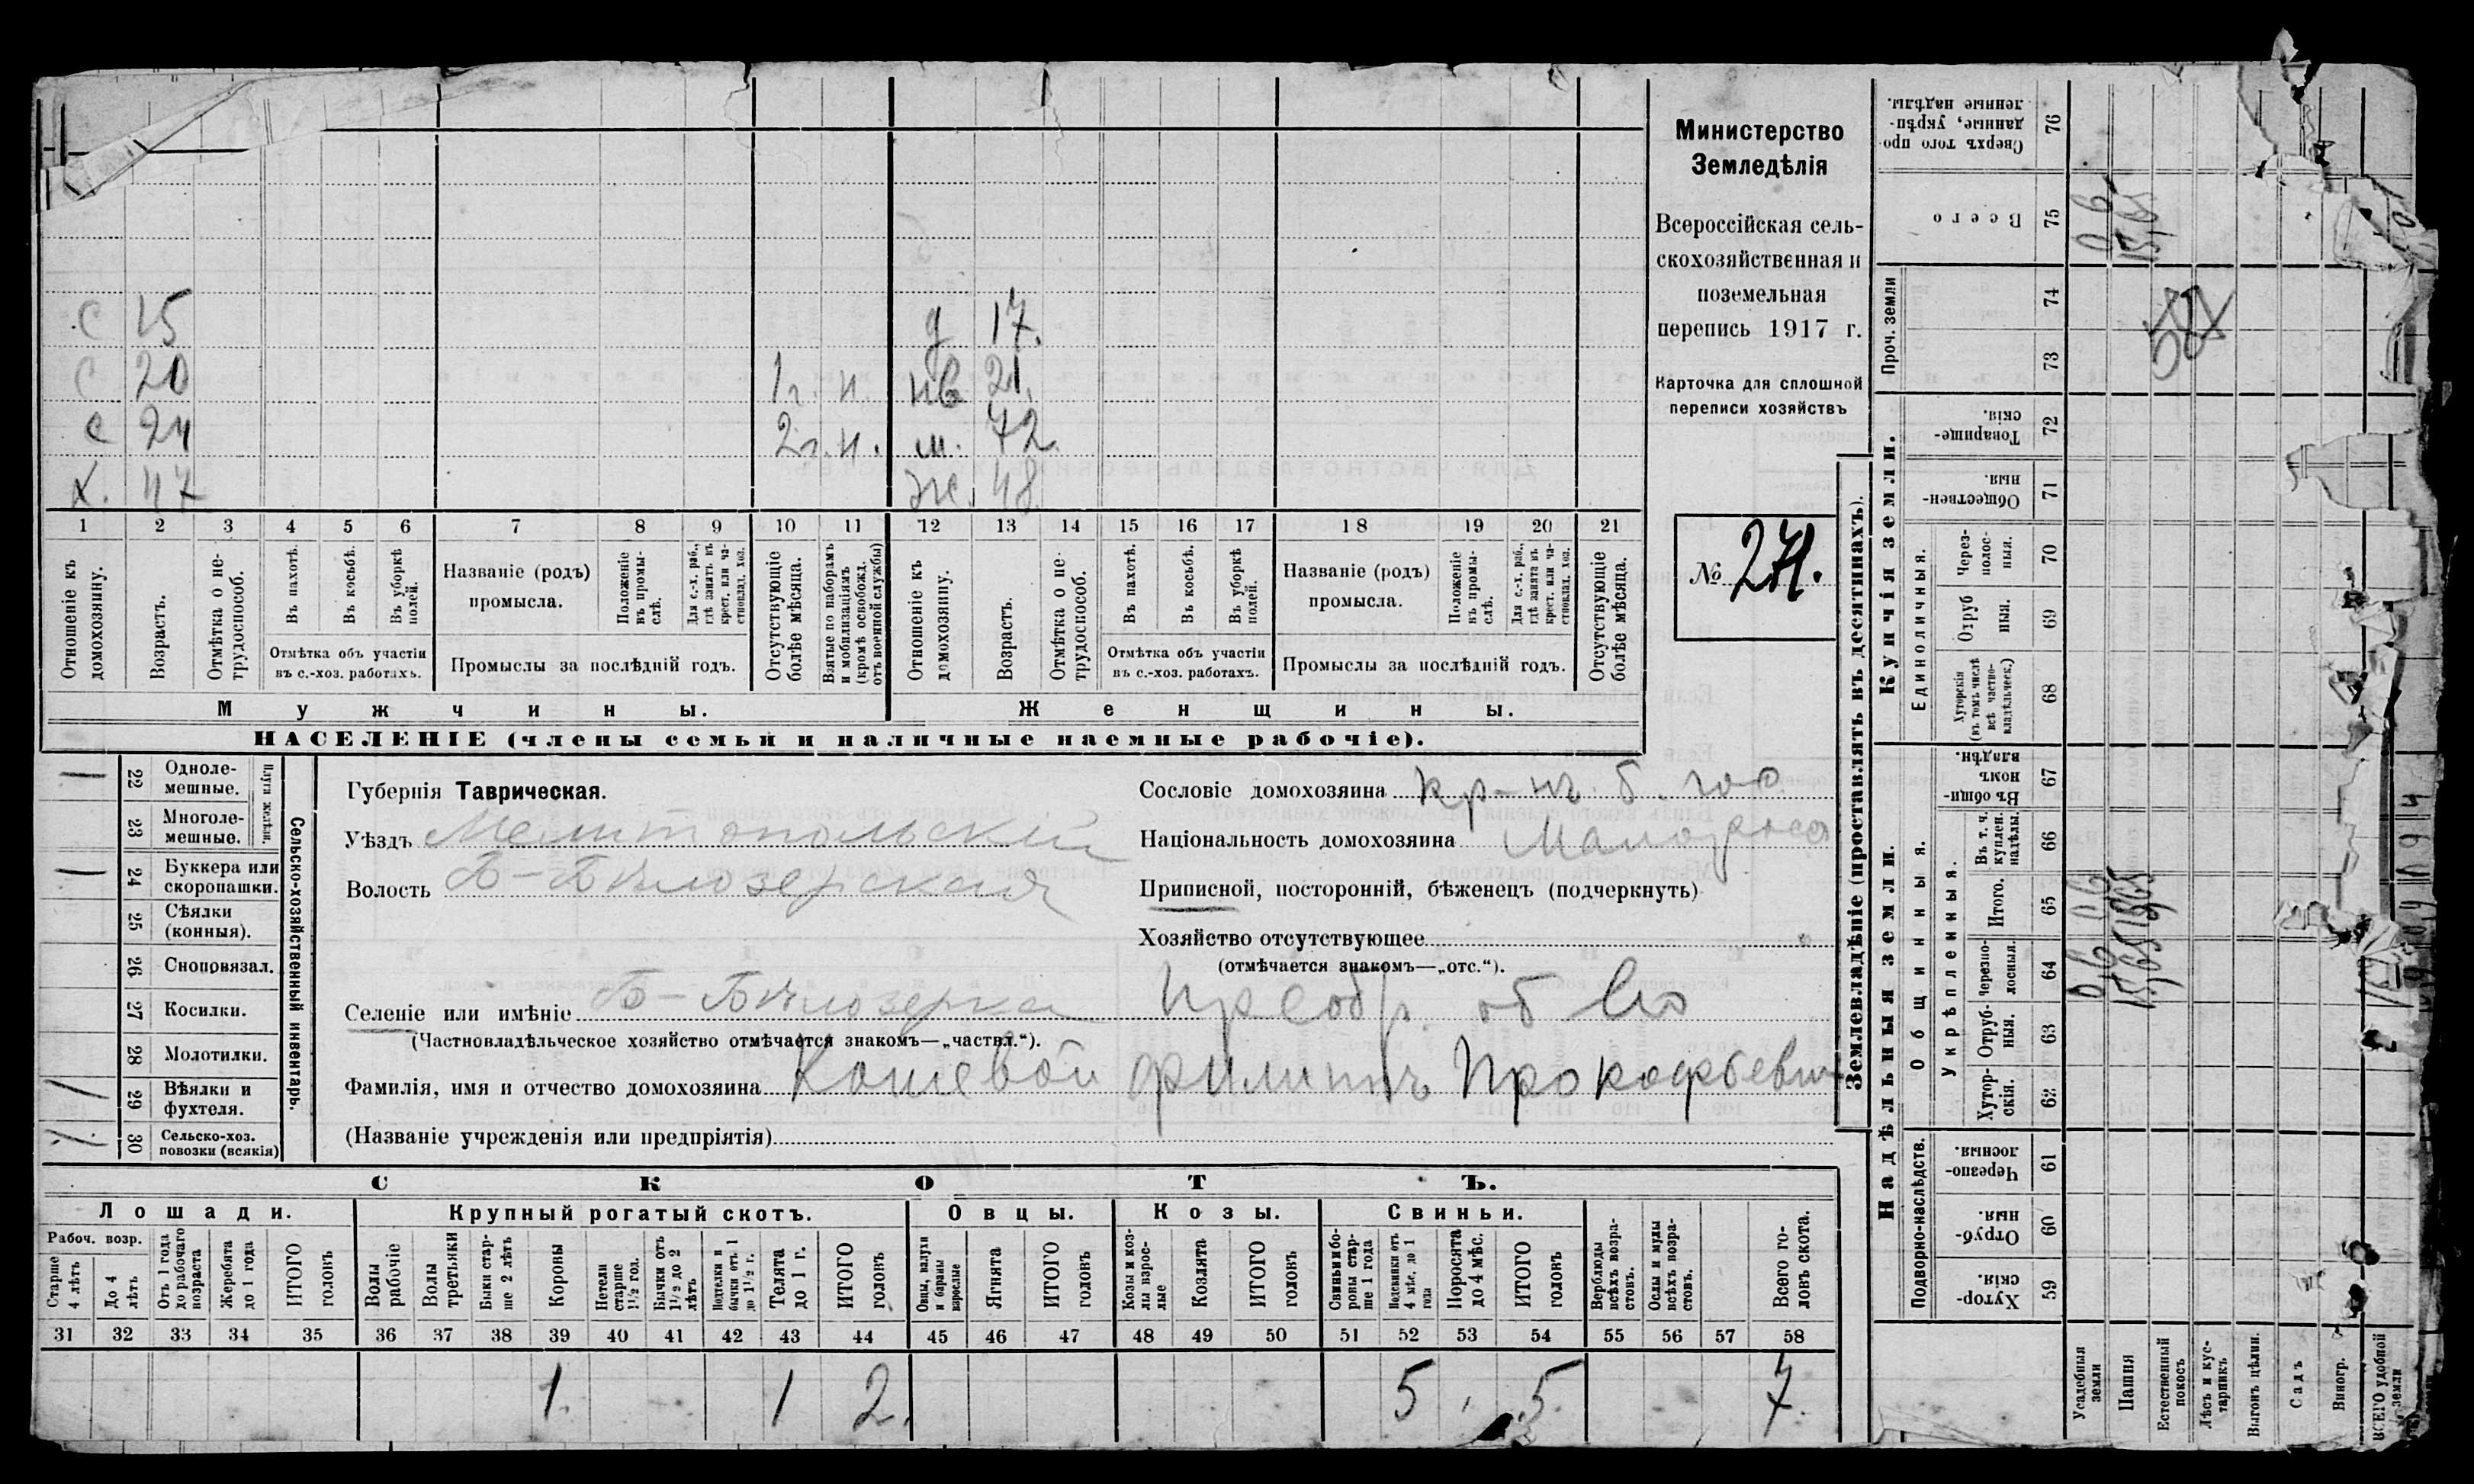 Министерство
Земледѣлія
Всероссійская сель-
скохозяйственная и
поземельная
перепись 1917 г.
Карточка для сплошной
переписи хозяйствъ
№ 271.
с 15 д 17.
с 20 1 г. н. нв 21.
с 24 2 г. н. м. 72.
х. 47 ж. 48
1 2 3 4 5 6 7 8 9 10 11 12 13 14 15 16 17 18 19 20 21
Отношеніе къ домохозяину.
Возрастъ.
Отмѣтка о не-трудоспособ.
Въ пахотѣ.
Въ косьбѣ.
Въ уборкѣ полей.
Отмѣтка объ участіи
въ с.-хоз. работахъ.
Названіе (родъ)
промысла.
Положеніе въ промы-слѣ.
Для с.-х. раб., гдѣ занятъ въ крест. или ча-стновлад. хоз.
Промыслы за послѣдній годъ.
Отсутствующіе болѣе мѣсяца.
Взятые по наборамъ и мобилизаціямъ (кромѣ освобожд. отъ военной службы)
Отношеніе къ домохозяину.
Возрастъ.
Отмѣтка о не-трудоспособ.
Въ пахотѣ.
Въ косьбѣ.
Въ уборкѣ полей.
Отмѣтка объ участіи
въ с.-хоз. работахъ.
Названіе (родъ)
промысла.
Положеніе въ промы-слѣ.
Для с.-х. раб., гдѣ занята въ крест. или ча-стновлад. хоз.
Промыслы за послѣдній годъ.
Отсутствующіе болѣе мѣсяца.
Мужчины. Женщины.
НАСЕЛЕНІЕ (члены семьи и наличные наемные рабочіе).
Сельско-хозяйственный инвентарь.
Плуги желѣзн.
22 Одноле-мешные. 1
23 Многоле-мешные.
24 Буккера или скоропашки. 1
25 Сѣялки (конныя).
26 Сноповязал.
27 Косилки.
28 Молотилки.
29 Вѣялки и фухтеля. 1
30 Сельско-хоз. повозки (всякія) 1.
Губернія Таврическая.
Уѣздъ Мелитопольскій
Волость Б-Бѣлозерская
Селеніе или имѣніе Б-Бѣлозерка Преобр. об во
(Частновладѣльческое хозяйство отмѣчается знакомъ—„частвл.“).
Фамилія, имя и отчество домохозяина Кошевой Филиппъ Прокофьевич
(Названіе учрежденія или предпріятія)
Сословіе домохозяина кр-нъ. б. гос.
Національность домохозяина Малоросс
Приписной, посторонній, бѣженецъ (подчеркнуть)
Хозяйство отсутствующее
(отмѣчается знакомъ—„отс.“).
СКОТЪ.
Лошади. Крупный рогатый скотъ. Овцы. Козы. Свиньи.
Рабоч. возр.
Старше 4 лѣтъ
До 4 лѣтъ
Отъ 1 года до рабочаго возраста
Жеребята до 1 года
ИТОГО головъ
Волы рабочіе
Волы третьяки
Быки стар-ше 2 лѣтъ
Коровы
Нетели старше 1½ год.
Бычки отъ 1½ до 2 лѣтъ
Подтелки и бычки отъ 1 до 1½ г.
Телята до 1 г.
ИТОГО головъ
Овцы, валухи и бараны взрослые
Ягнята
ИТОГО головъ
Козы и коз-лы взрос-лые
Козлята
ИТОГО головъ
Свиньи и бо-ровы стар-ше 1 года
Подсвинки отъ 4 мѣс. до 1 года
Поросята до 4 мѣс.
ИТОГО головъ
Верблюды всѣхъ возра-стовъ.
Ослы и мулы всѣхъ возра-стовъ.
Всего го-ловъ скота.
31 32 33 34 35 36 37 38 39 40 41 42 43 44 45 46 47 48 49 50 51 52 53 54 55 56 57 58
1. 1 2. 5 5. 7.
Землевладѣніе (проставлять въ десятинахъ).
Надѣльныя земли. Купчія земли.
Подворно-наслѣдств.
Общинныя.
Укрѣпленныя.
Единоличныя.
Проч. земли
59 Хутор-скія.
60 Отруб-ныя.
61 Черезпо-лосныя.
62 Хутор-скія.
63 Отруб-ныя.
64 Черезпо-лосныя. 0,6 15,65
65 Итого.
66 Въ т. ч. куплен. надѣлы.
67 Въ общи-номъ владѣн.
68 Хуторскія (въ томъ числѣ всѣ частно-владѣльческ.)
69 Отруб-ныя.
70 Через-полос-ныя.
71 Обществен-ныя.
72 Товарище-скія.
73
74
75 Всего 0 6 15,65
76 Сверхъ того про-данные, укрѣп-ленные надѣлы.
Усадебныя земли
Пашня
Естественный покосъ
Лѣсъ и кус-тарникъ
Выгонъ цѣлин.
Садъ
Виногр.
ВСЕГО удобной земли